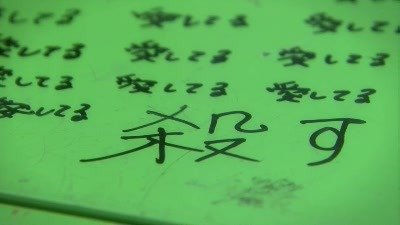 愛してる 愛してる
愛してる 愛してる 愛してる
愛してる 愛してる 愛してる
愛してる
殺す